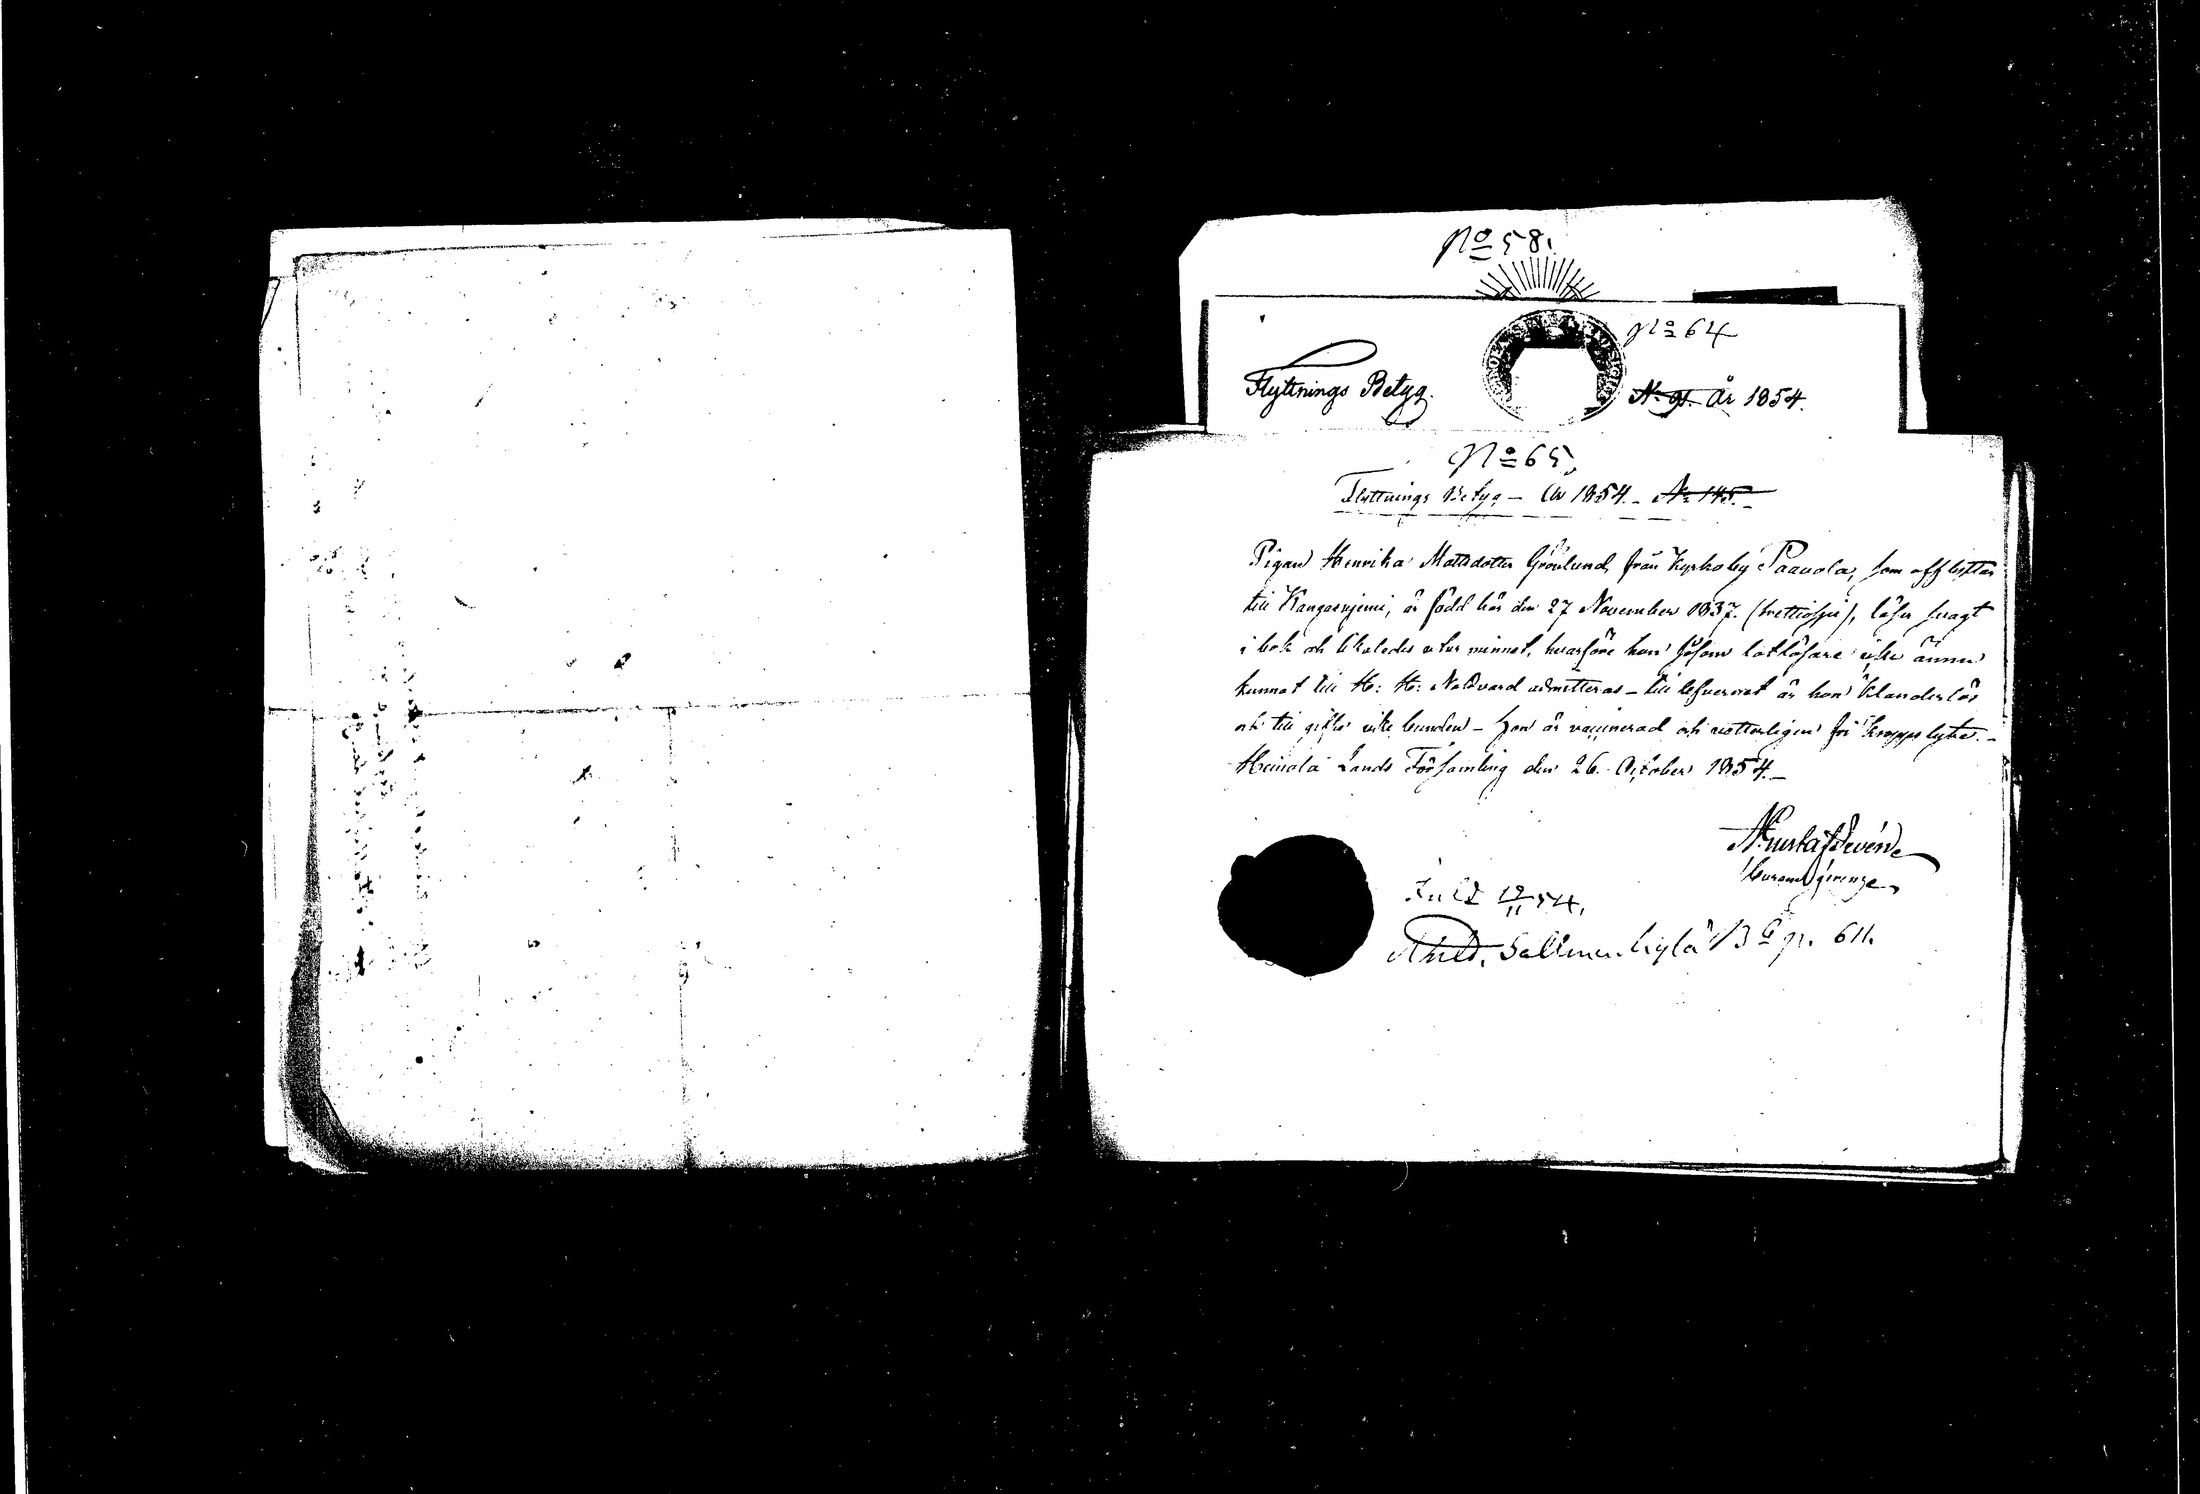 No 58.
No 64
Flyttnings Betyg. No 91. År 1854.
No 65,
Flyttnings Betyg – År 1854. – No 145. –
Pigan Henrika Mattsdotter Grönlund, från Kyrkoby Paavola, som afflyttar
till Kangasnjemi, är född här den 27 November 1837. (trettiosju), läser svagt
i bok och likaledes utur minnet, hvarföre hon såsom lättläsare icke ännu
kunnat till H: H: Nattvard admitteras – till lefvernet är hon klanderlös
och till gifte icke bunden – Hon är vaccinerad och vetterligen fri kroppslyte. –
Heinola Lands Församling den 26. October 1854. –
54,
Salmenkylä No 6 p. 611.